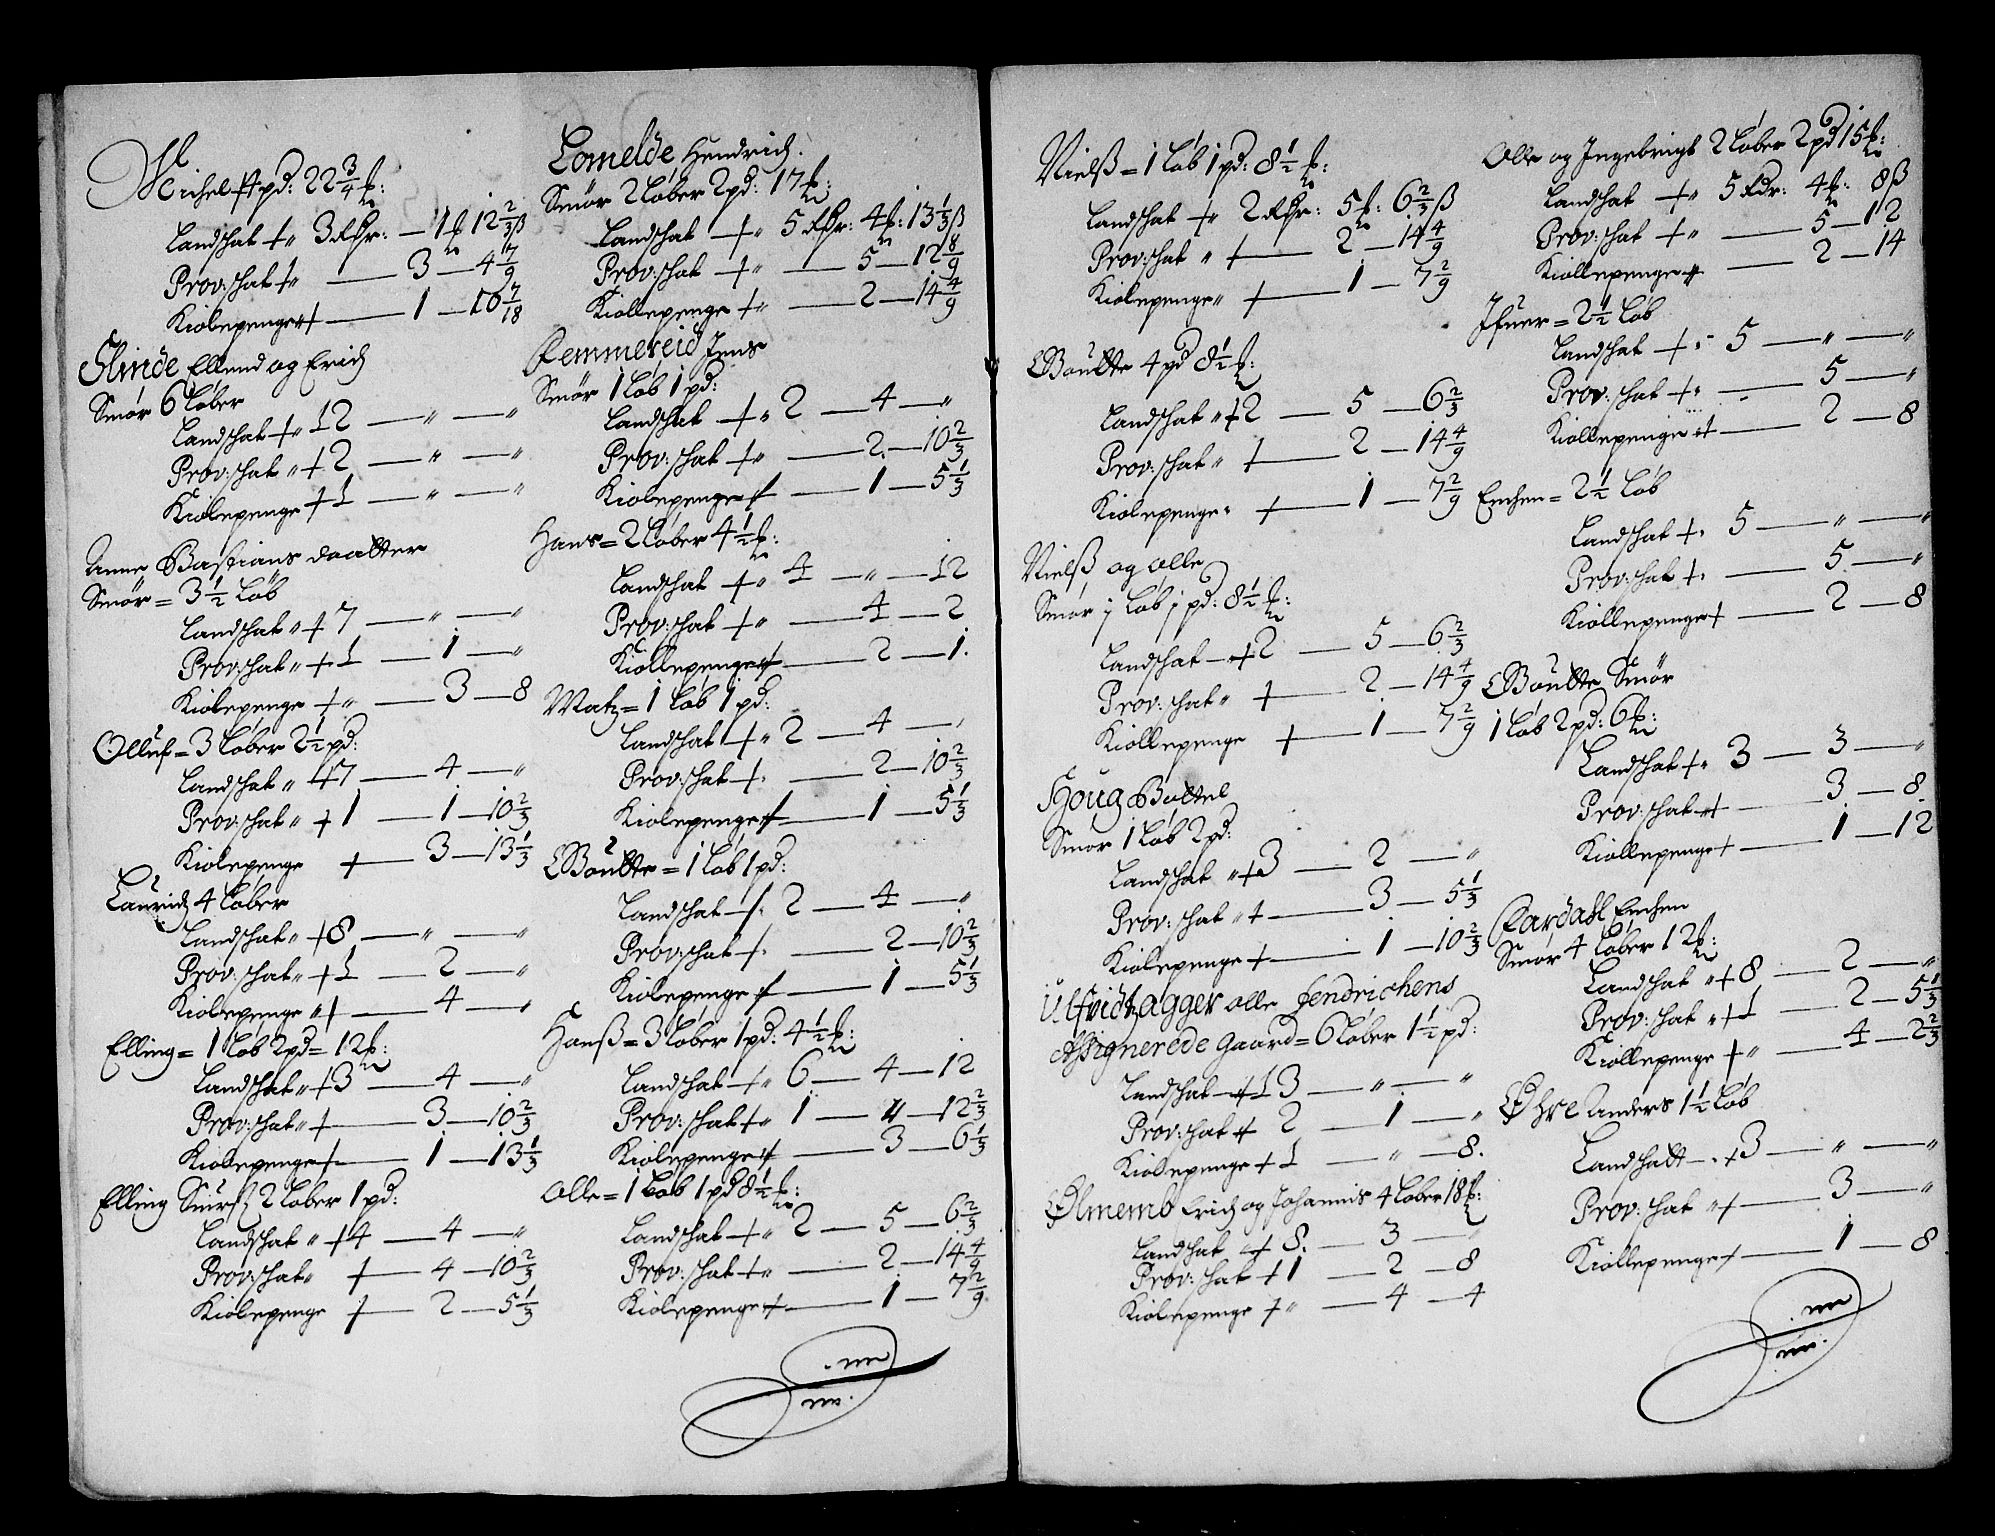 Michel 4 pd: 22 3/4 ℔:
Landschat + " 3 Rdr: — 1 ℔ 12 2/3 ß
Prov: schat + " — 3 — 4 7/9
Kiolepenge + — 1 — 10 7/18
Slinde Ellend og Erich
Smör 6 löber
Landschat + " 12 — " — "
Prov: schat " + 2 — " — "
Kiolepenge + 1 — " — "
Anne Bastians daatter
Smör = 3 1/2 Löb
Landschat " + 7 — " — "
Prov: schat " + 1 — 1 — "
Kiolepenge + " — 3 — 8
Olluf = 3 löber 2 1/2 pd:
Landschat " + 7 — 4 — "
Prov: schat " + 1 — 1 — 10 2/3
Kiolepenge + — 3 — 13 1/3
Laurids 4 löber
Landschat " + 8 — " — "
Prov: schat " + 1 — 2 — "
Kiolepenge " + — 4 — "
Elling = 1 löb 2 pd = 12 ℔:
Landschat " + 3 — 4 — "
Prov: schat " + — 3 — 10 2/3
Kiolepenge + — 1 — 13 1/3
Elling 2 löber 1 pd:
Landschat " + 4 — 4 — "
Prov: schat " + — 4 — 10 2/3
Kiolepenge + — 2 — 5 1/3
Lomelde Hendrich.
Smör 2 löber 2 pd: 17 ℔:
Landschat + " 5 Rdr: 4 ℔: 13 1/3 ß
Prov: schat + " — 5 — 12 8/9
Kiollepenge + " — 2 — 14 4/9
Remmereid Jens
Smör 1 löb 1 pd:
Landschat + " 2 — 4 — "
Prov: schat + " — 2 — 10 2/3
Kiolepenge + — 1 — 5 1/3
Hans = 2 löber 4 1/2 ℔:
Landschat + " 4 — " — 12
Prov: schat + " — 4 — 2
Kiollepenge + — 2 — 1.
Matz = 1 löb 1 pd:
Landschat + " 2 — 4 — "
Prov: schat + — 2 — 10 2/3
Kiolepenge + — 1 — 5 1/3
Boutte = 1 löb 1 pd:
Landschat + 2 — 4 — "
Prov: schat + — 2 — 10 2/3
Kiolepenge + — 1 — 5 1/3
Hanß = 3 löber 1 pd: 4 1/2 ℔:
Landschat + " 6 — 4 — 12
Prov: schat + " 1 — " — 12 2/3
Kiolepenge + — 3 — 6 1/3
Olle = 1 löb 1 pd 8 1/2 ℔:
Landschat + " 2 — 5 — 6 2/3
Prov: schat + " — 2 — 14 4/9
Kiolepenge + — 1 — 7 2/9
Nielß = 1 löb 1 pd: 8 1/2 ℔:
Landschat + " 2 Rdr: 5 ℔: 6 2/3 ß
Prov: schat " + — 2 — 14 4/9
Kiolepenge " + — 1 — 7 2/9
Boutte 4 pd 8 1/2 ℔:
Landschat " + 2 — 5 — 6 2/3
Prov: schat " + — 2 — 14 4/9
Kiolepenge " + — 1 — 7 2/9
Nielß og Olle
Smör j löb j pd: 8 1/2 ℔:
Landschat — + 2 — 5 — 6 2/3
Prov: schat " + — 2 — 14 4/9
Kiollepenge + — 1 — 7 2/9
Houg Bottel
Smör 1 löb 2 pd:
Landschat " + 3 — 2 — "
Prov: schat " + — 3 — 5 1/3
Kiolepenge + — 1 — 10 2/3
Ulfvidtzagger Olle Hendrichens
Assignerede Gaard = 6 löber 1 1/2 pd:
Landschat — + 13 — " — "
Prov: schat + 2 — 1 — "
Kiolepenge + 1 — " — 8.
Ølmemb Erich og Johannis 4 löber 18 ℔:
Landschat " + 8. — 3 — "
Prov: schat + 1 — 2 — 8
Kiolepenge + " — 4 — 4
Olle og Ingebrigt 2 löber 2 pd 15 ℔:
Landschat + " 5 Rdr: 4 ℔: 8 ß
Prov: schat + " — 5 — 12
Kiollepenge + — 2 — 14
Ifuer = 2 1/2 löb
Landschat + " 5 — " — "
Prov: schat + " — 5 — "
Kiollepenge + — 2 — 8
Enchen = 2 1/2 löb
Landschat + 5 — " — "
Prov: schat + — 5 — "
Kiollepenge + — 2 — 8
Boutte Smör
1 löb 2 pd: 6 ℔:
Landschat + " 3 — 3 — "
Prov: schat + — 3 — 8.
Kiollepenge + — 1 — 12
Fardahl Enchen
Smör 4 löber 12 ℔:
Landschat " + 8 — 2 — "
Prov: schat " + 1 — 2 — 5 1/3
Kiollepenge + " — 4 — 2 2/3
Øhre Anders 1 1/2 löb
Landschatt — + 3 — " — "
Prov: schat " + — 3 — "
Kiollepenge + — 1 — 8.